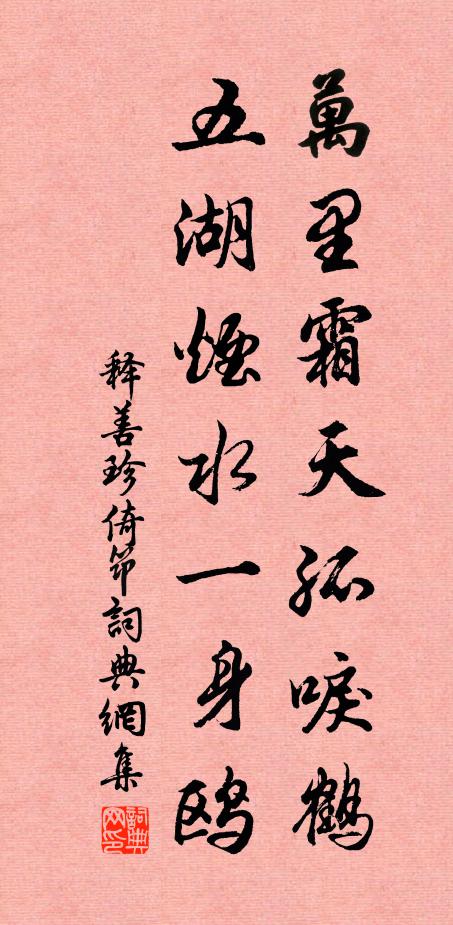 萬里霜天孤唳鶴
五湖煙水一身鸥
释善珍倚筇詞典網集
詞典
网印